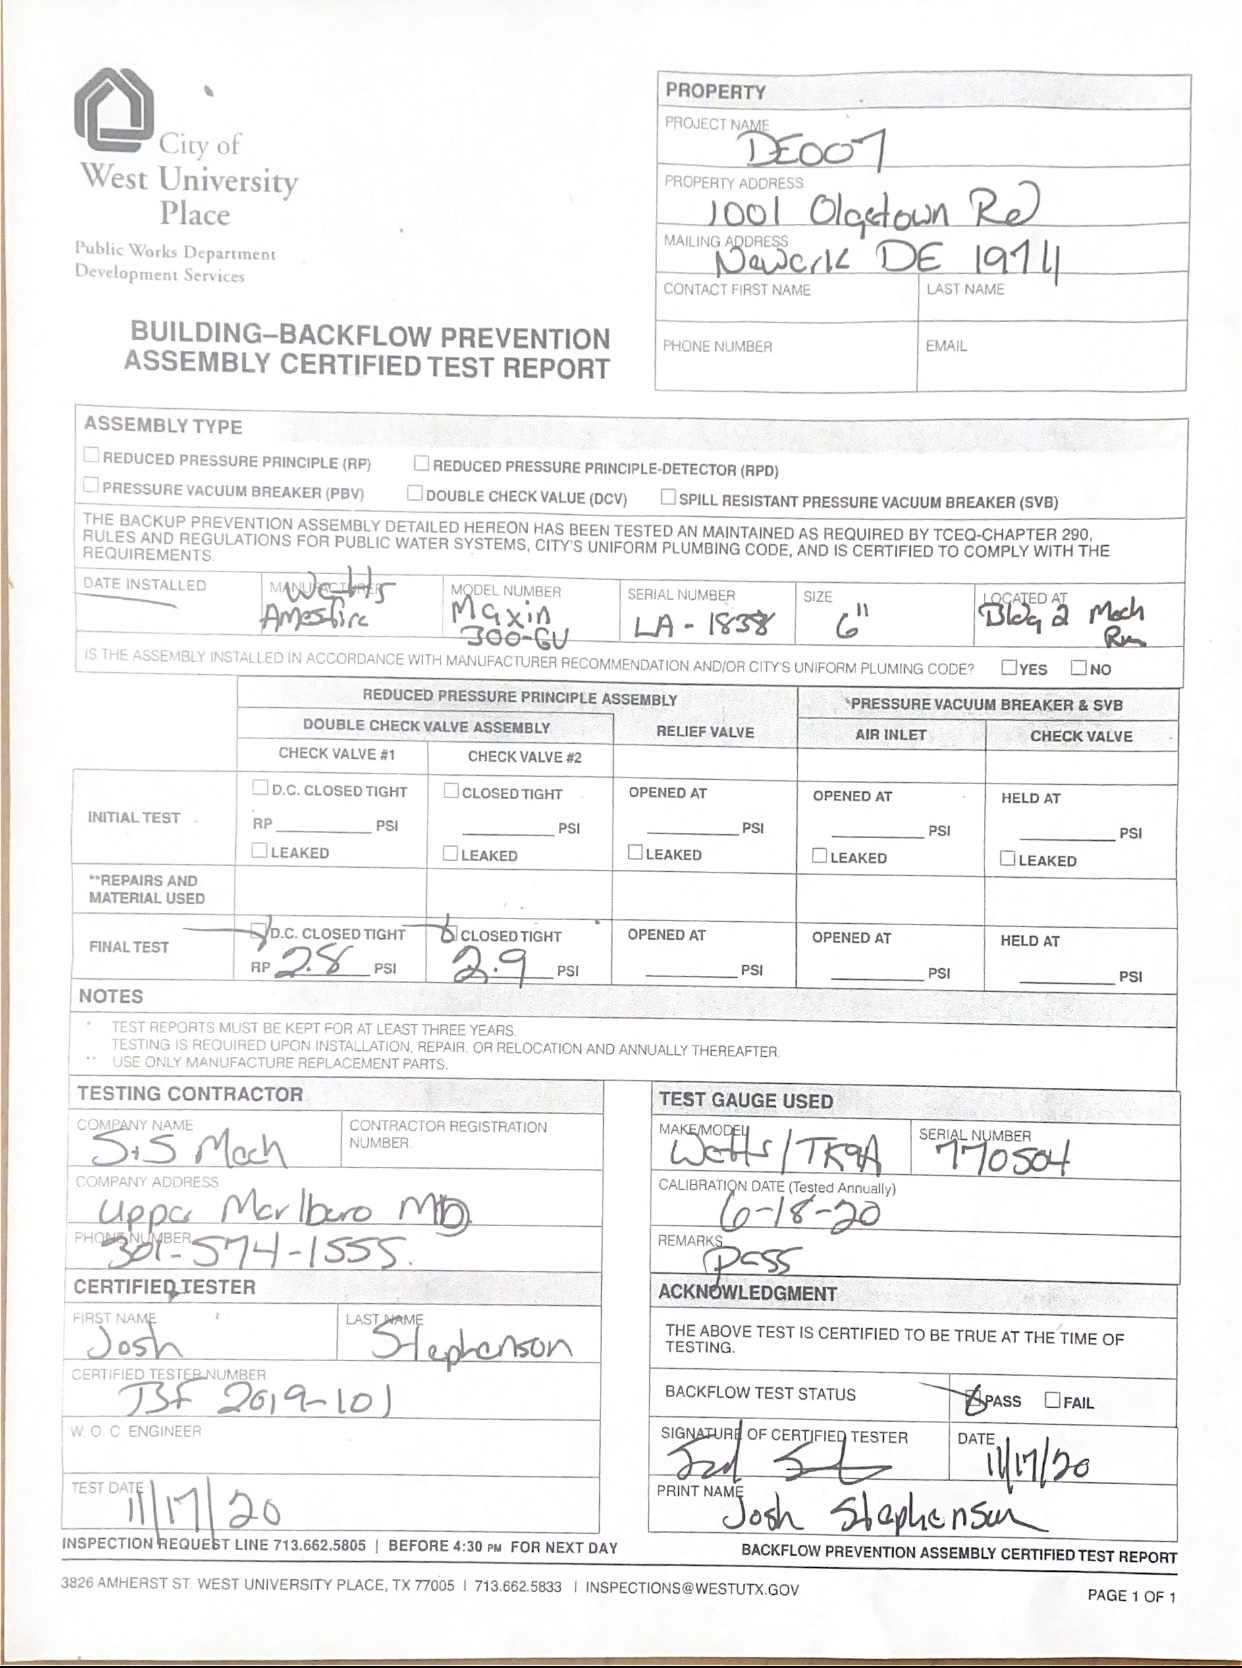 City of
West University
Place
Public Works Department
Development Services
BUILDING–BACKFLOW PREVENTION
ASSEMBLY CERTIFIED TEST REPORT
PROPERTY
PROJECT NAME
DE007
PROPERTY ADDRESS
1001 Olgetown Rd
MAILING ADDRESS
Newark DE 19711
CONTACT FIRST NAME LAST NAME
PHONE NUMBER EMAIL
ASSEMBLY TYPE
REDUCED PRESSURE PRINCIPLE (RP) REDUCED PRESSURE PRINCIPLE-DETECTOR (RPD)
PRESSURE VACUUM BREAKER (PBV) DOUBLE CHECK VALUE (DCV) SPILL RESISTANT PRESSURE VACUUM BREAKER (SVB)
THE BACKUP PREVENTION ASSEMBLY DETAILED HEREON HAS BEEN TESTED AN MAINTAINED AS REQUIRED BY TCEQ-CHAPTER 290,
RULES AND REGULATIONS FOR PUBLIC WATER SYSTEMS, CITY'S UNIFORM PLUMBING CODE, AND IS CERTIFIED TO COMPLY WITH THE
REQUIREMENTS.
DATE INSTALLED MANUFACTURER MODEL NUMBER SERIAL NUMBER SIZE LOCATED AT
Watts Maxim LA-1838 6" Bldg 2 Mech
Amesfire 300-GU Rm
IS THE ASSEMBLY INSTALLED IN ACCORDANCE WITH MANUFACTURER RECOMMENDATION AND/OR CITY'S UNIFORM PLUMING CODE? YES NO
REDUCED PRESSURE PRINCIPLE ASSEMBLY PRESSURE VACUUM BREAKER & SVB
DOUBLE CHECK VALVE ASSEMBLY RELIEF VALVE AIR INLET CHECK VALVE
CHECK VALVE #1 CHECK VALVE #2
INITIAL TEST D.C. CLOSED TIGHT CLOSED TIGHT OPENED AT OPENED AT HELD AT
RP PSI PSI PSI PSI PSI
LEAKED LEAKED LEAKED LEAKED LEAKED
**REPAIRS AND
MATERIAL USED
FINAL TEST D.C. CLOSED TIGHT CLOSED TIGHT OPENED AT OPENED AT HELD AT
RP 2.8 PSI 2.9 PSI PSI PSI PSI
NOTES
* TEST REPORTS MUST BE KEPT FOR AT LEAST THREE YEARS.
TESTING IS REQUIRED UPON INSTALLATION, REPAIR, OR RELOCATION AND ANNUALLY THEREAFTER.
** USE ONLY MANUFACTURE REPLACEMENT PARTS.
TESTING CONTRACTOR
COMPANY NAME CONTRACTOR REGISTRATION
NUMBER.
S+S Mech
COMPANY ADDRESS
Upper Marlboro MD
PHONE NUMBER
301-574-1555.
TEST GAUGE USED
MAKE/MODEL SERIAL NUMBER
Watts/TK9A 770504
CALIBRATION DATE (Tested Annually)
6-18-20
REMARKS
pass
CERTIFIED TESTER
FIRST NAME LAST NAME
Josh Stephenson
CERTIFIED TESTER NUMBER
TBF 2019-101
W. O. C. ENGINEER
TEST DATE
11/17/20
ACKNOWLEDGMENT
THE ABOVE TEST IS CERTIFIED TO BE TRUE AT THE TIME OF
TESTING.
BACKFLOW TEST STATUS PASS FAIL
SIGNATURE OF CERTIFIED TESTER DATE
11/17/20
PRINT NAME
Josh Stephenson
INSPECTION REQUEST LINE 713.662.5805 | BEFORE 4:30 PM FOR NEXT DAY
BACKFLOW PREVENTION ASSEMBLY CERTIFIED TEST REPORT
3826 AMHERST ST. WEST UNIVERSITY PLACE, TX 77005 | 713.662.5833 | INSPECTIONS@WESTUTX.GOV
PAGE 1 OF 1